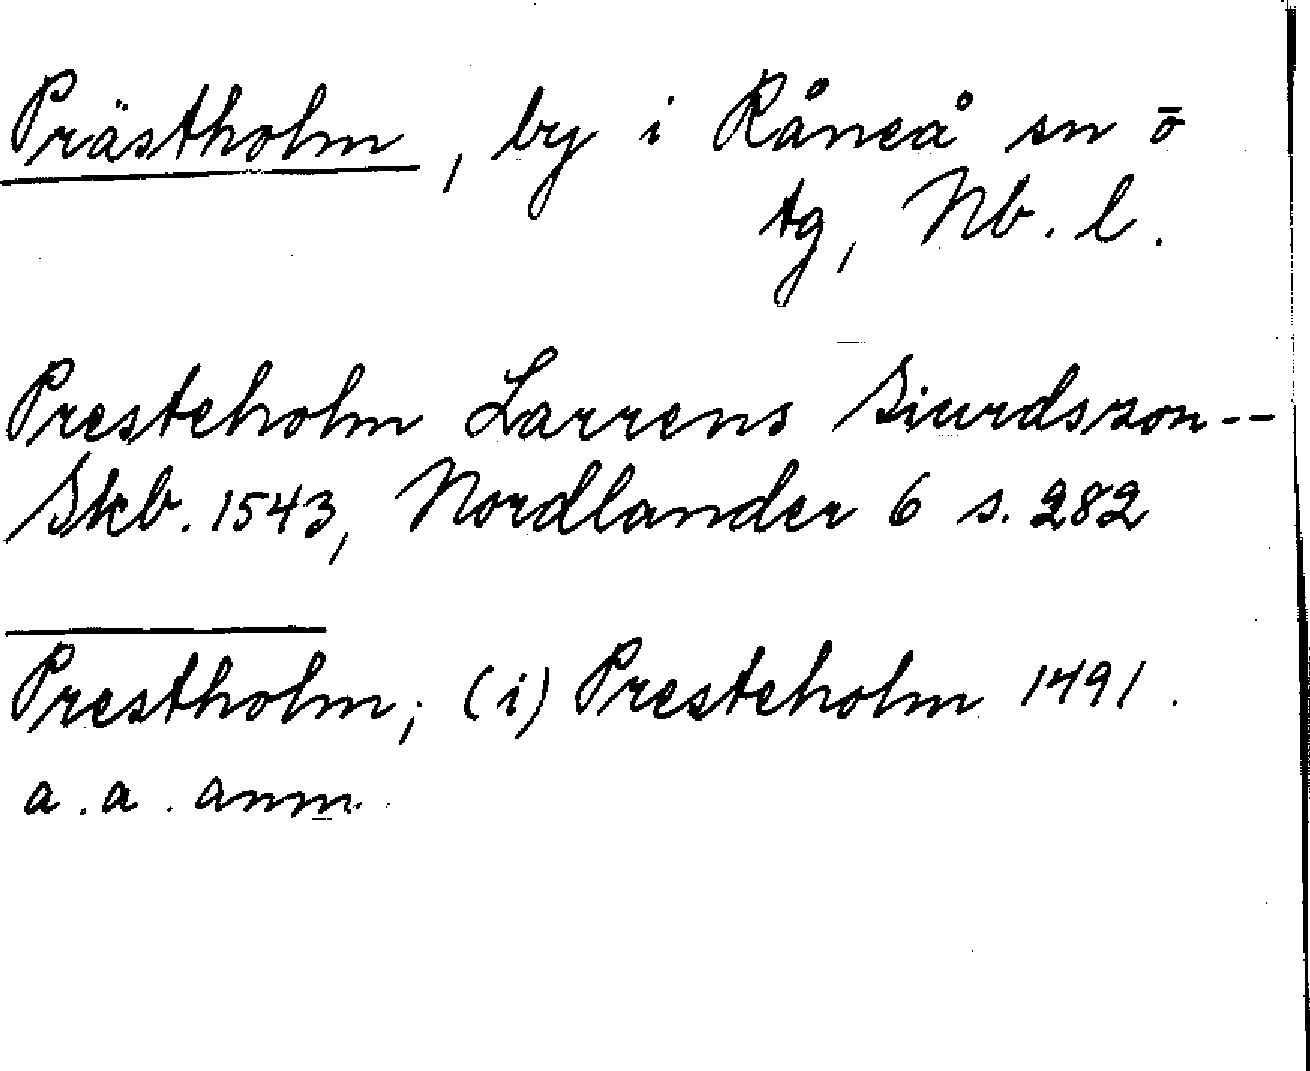 Prästholm, by i Råneå sn ö
tg, Nb. l.
Presteholm Larrens Siurdsson--
Skb. 1543, Nordlander 6 s. 282
Prestholm; (i) Presteholm 1491.
a. a. anm.